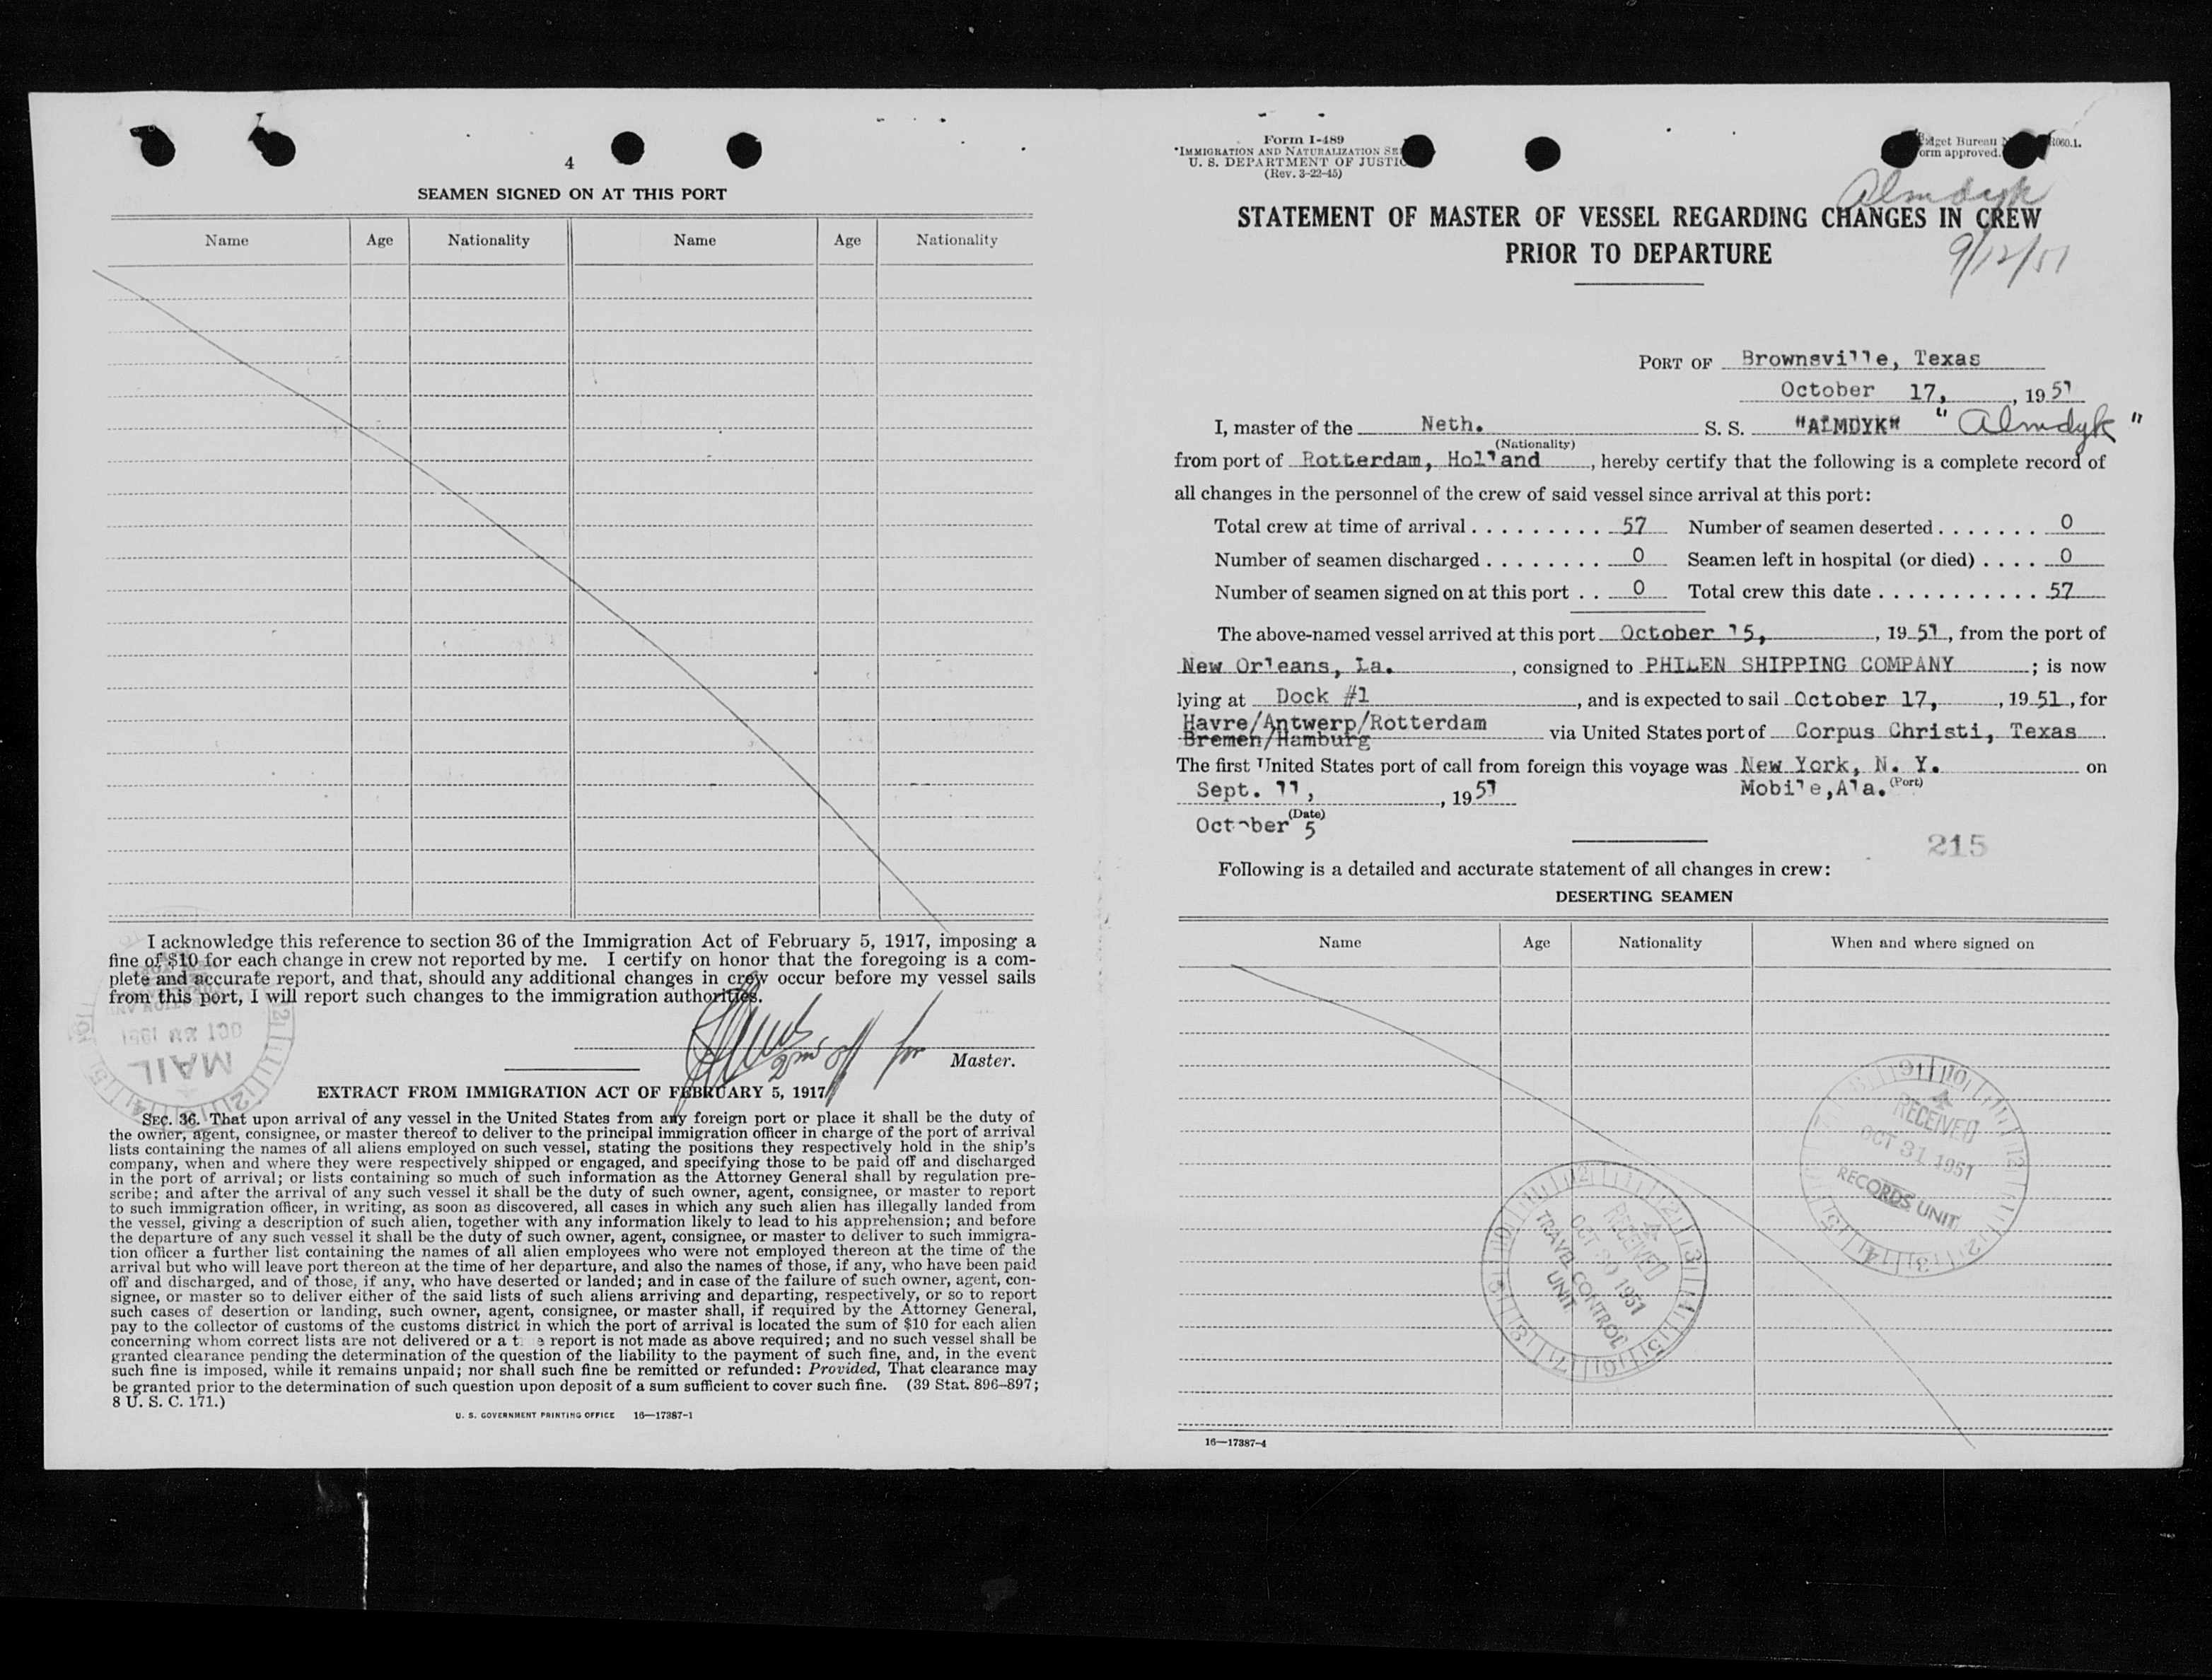 4
SEAMEN SIGNED ON AT THIS PORT
Name Age Nationality Name Age Nationality
I acknowledge this reference to section 36 of the Immigration Act of February 5, 1917, imposing a
fine of $10 for each change in crew not reported by me. I certify on honor that the foregoing is a com-
plete and accurate report, and that, should any additional changes in crew occur before my vessel sails
from this port, I will report such changes to the immigration authorities.
2nd off for Master.
OCT 1951
MAIL
EXTRACT FROM IMMIGRATION ACT OF FEBRUARY 5, 1917
SEC. 36. That upon arrival of any vessel in the United States from any foreign port or place it shall be the duty of
the owner, agent, consignee, or master thereof to deliver to the principal immigration officer in charge of the port of arrival
lists containing the names of all aliens employed on such vessel, stating the positions they respectively hold in the ship's
company, when and where they were respectively shipped or engaged, and specifying those to be paid off and discharged
in the port of arrival; or lists containing so much of such information as the Attorney General shall by regulation pre-
scribe; and after the arrival of any such vessel it shall be the duty of such owner, agent, consignee, or master to report
to such immigration officer, in writing, as soon as discovered, all cases in which any such alien has illegally landed from
the vessel, giving a description of such alien, together with any information likely to lead to his apprehension; and before
the departure of any such vessel it shall be the duty of such owner, agent, consignee, or master to deliver to such immigra-
tion officer a further list containing the names of all alien employees who were not employed thereon at the time of the
arrival but who will leave port thereon at the time of her departure, and also the names of those, if any, who have been paid
off and discharged, and of those, if any, who have deserted or landed; and in case of the failure of such owner, agent, con-
signee, or master so to deliver either of the said lists of such aliens arriving and departing, respectively, or so to report
such cases of desertion or landing, such owner, agent, consignee, or master shall, if required by the Attorney General,
pay to the collector of customs of the customs district in which the port of arrival is located the sum of $10 for each alien
concerning whom correct lists are not delivered or a t e report is not made as above required; and no such vessel shall be
granted clearance pending the determination of the question of the liability to the payment of such fine, and, in the event
such fine is imposed, while it remains unpaid; nor shall such fine be remitted or refunded: Provided, That clearance may
be granted prior to the determination of such question upon deposit of a sum sufficient to cover such fine. (39 Stat. 896–897;
8 U. S. C. 171.)
U. S. GOVERNMENT PRINTING OFFICE 16—17387-1
Form I-489
IMMIGRATION AND NATURALIZATION SE
U. S. DEPARTMENT OF JUSTIC
(Rev. 3-22-45)
Budget Bureau N R060.1.
orm approved.
Almdyk
STATEMENT OF MASTER OF VESSEL REGARDING CHANGES IN CREW
PRIOR TO DEPARTURE
9/12/51
PORT OF Brownsville, Texas
October 17, , 1951
I, master of the Neth. S. S. "ALMDYK" "Almdyk"
(Nationality)
from port of Rotterdam, Holland, hereby certify that the following is a complete record of
all changes in the personnel of the crew of said vessel since arrival at this port:
Total crew at time of arrival 57 Number of seamen deserted 0
Number of seamen discharged 0 Seamen left in hospital (or died) 0
Number of seamen signed on at this port 0 Total crew this date 57
The above-named vessel arrived at this port October 15, , 1951, from the port of
New Orleans, La. , consigned to PHILEN SHIPPING COMPANY ; is now
lying at Dock #1 , and is expected to sail October 17, , 1951, for
Havre/Antwerp/Rotterdam
Bremen/Hamburg via United States port of Corpus Christi, Texas.
The first United States port of call from foreign this voyage was New York, N. Y. on
Sept. 11, , 1951 Mobile, Ala. (Port)
(Date)
October 5
215
Following is a detailed and accurate statement of all changes in crew:
DESERTING SEAMEN
Name Age Nationality When and where signed on
RECEIVED
OCT 31 1951
RECORDS UNIT
RECEIVED
OCT 30 1951
TRAVEL CONTROL
UNIT
16—17387-4